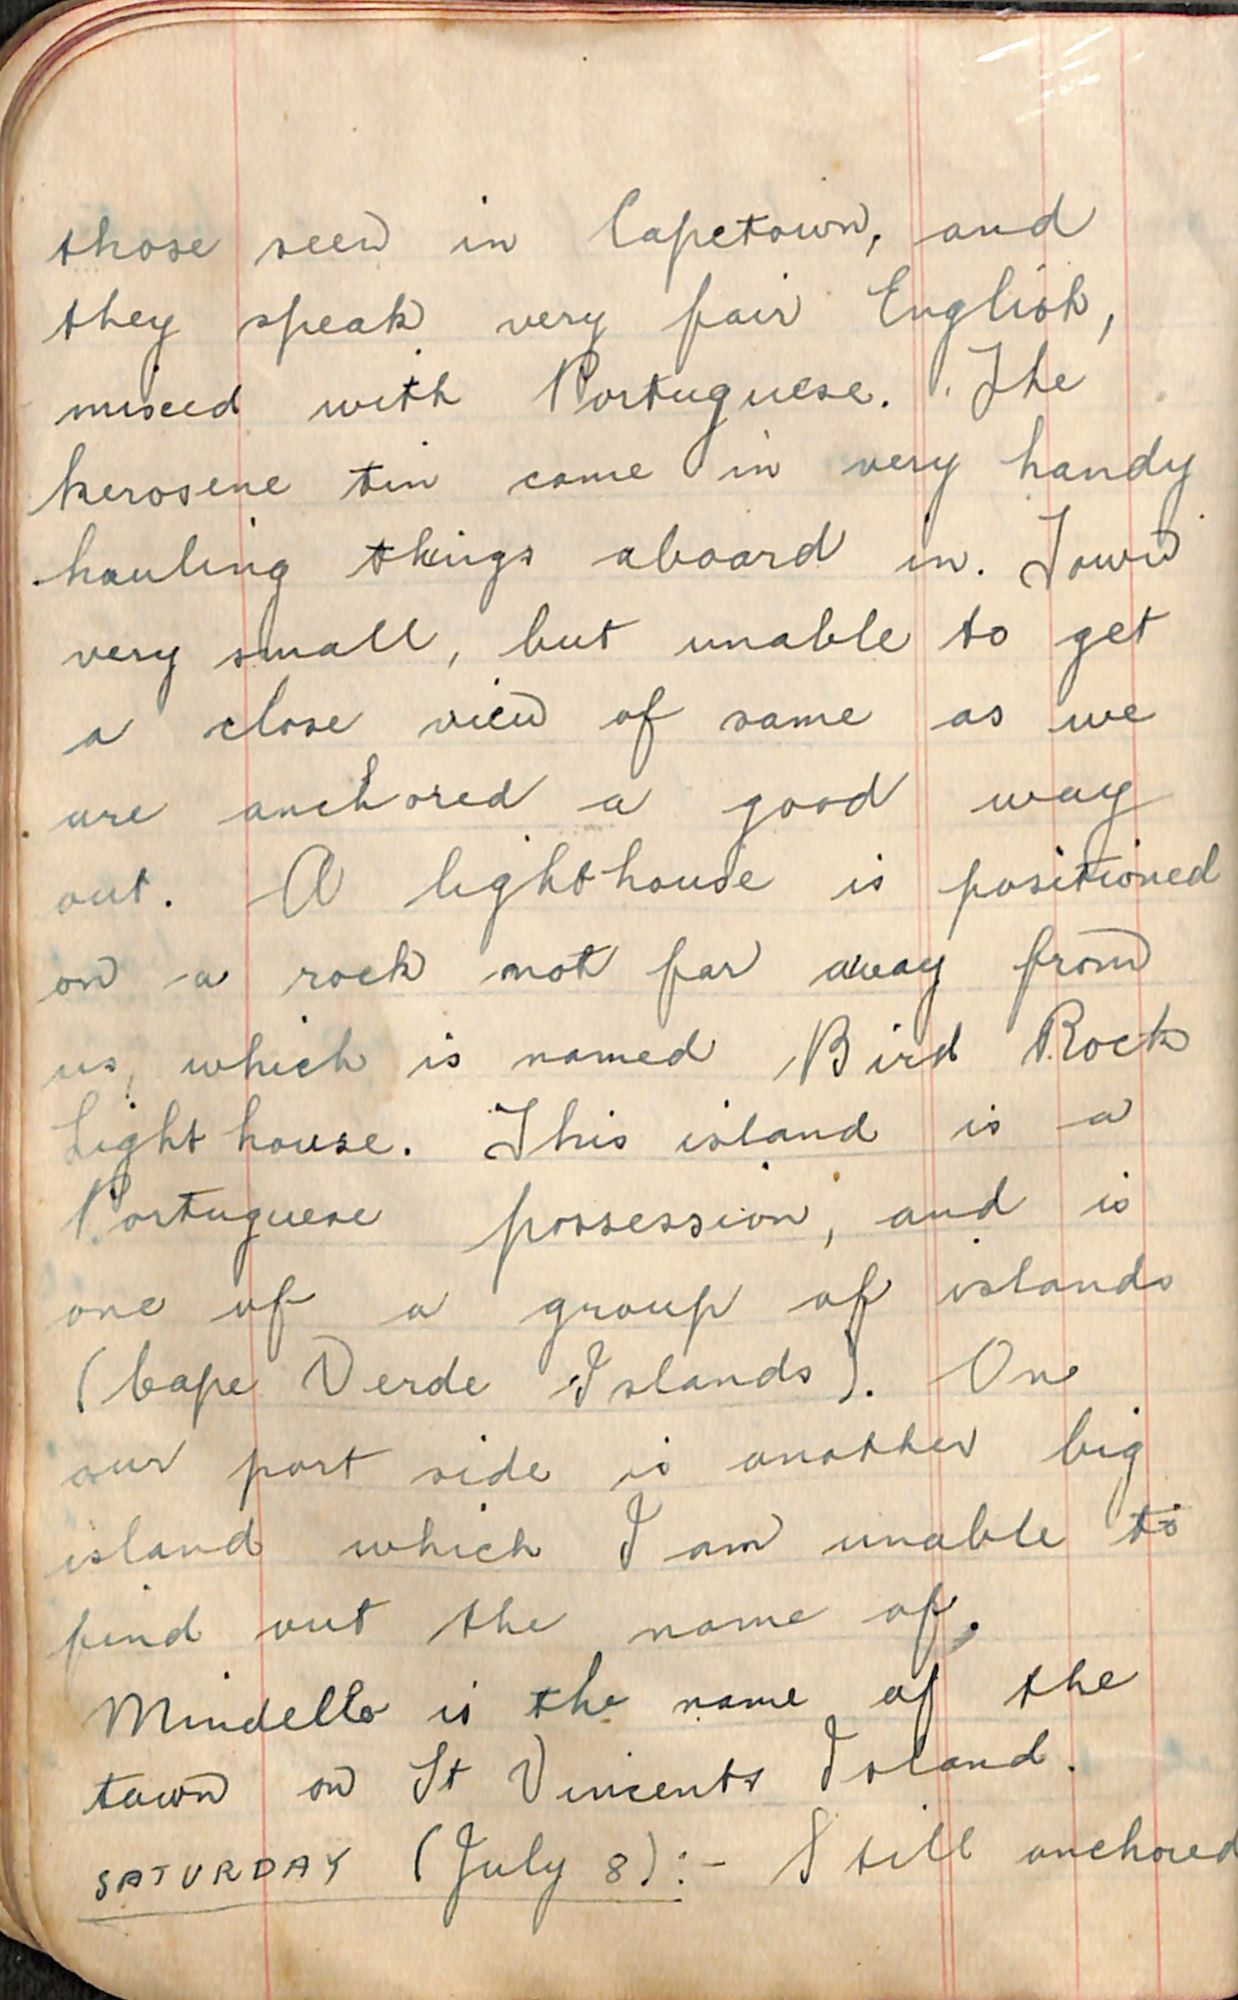 those seen in Capetown, and
they speak very fair English,
mixed with Portuguese. The
kerosene tin came in very handy
hauling things aboard in. Town
very small, but unable to get
a close view of same as we
are anchored a good way
out. A lighthouse is positioned
on a rock not far away from
us, which is named Bird Rock
Light house. This island is a
Portuguese possession, and is
one of a group of islands
(Cape Verde Islands). On
our port side is another big
island which I am unable to
find out the name of.
Mindello is the name of the
town on St Vincents Island.
SATURDAY (July 8):- Still anchored